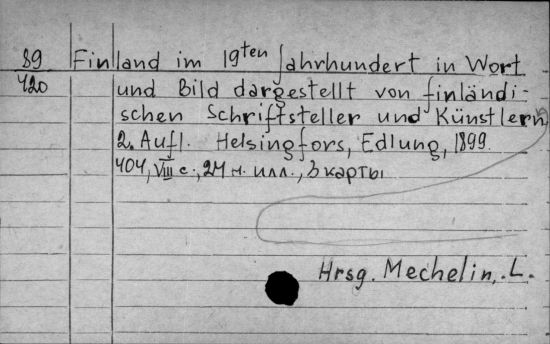 89 Finland im 19ten Jahrhundert in Wort
420 und Bild dargestellt von finländi-
schen Schriftsteller und Künstlern
2. Aufl. Helsingfors, Edlung, 1899.
404, VIII с., 24 н. илл., 3 карты
Hrsg. Mechelin, L.